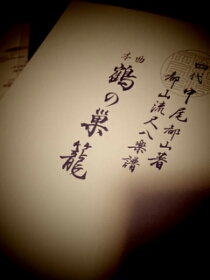 四代中尾都山著
都山流尺八楽譜
本曲
鶴の巣籠